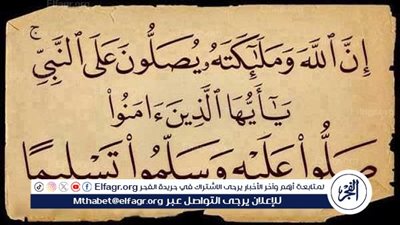 Elfagr.org
إِنَّ ٱللَّهَ وَمَلَٰٓئِكَتَهُۥ يُصَلُّونَ عَلَى ٱلنَّبِيِّ ۚ
يَٰٓأَيُّهَا ٱلَّذِينَ ءَامَنُوا۟
صَلُّوا۟ عَلَيْهِ وَسَلِّمُوا۟ تَسْلِيمًا
لمتابعة أهم وآخر الأخبار يرجى الاشتراك في جريدة الفجر Elfagr.org
للإعلان يرجى التواصل عبر Mthabet@elfagr.org
الفجر